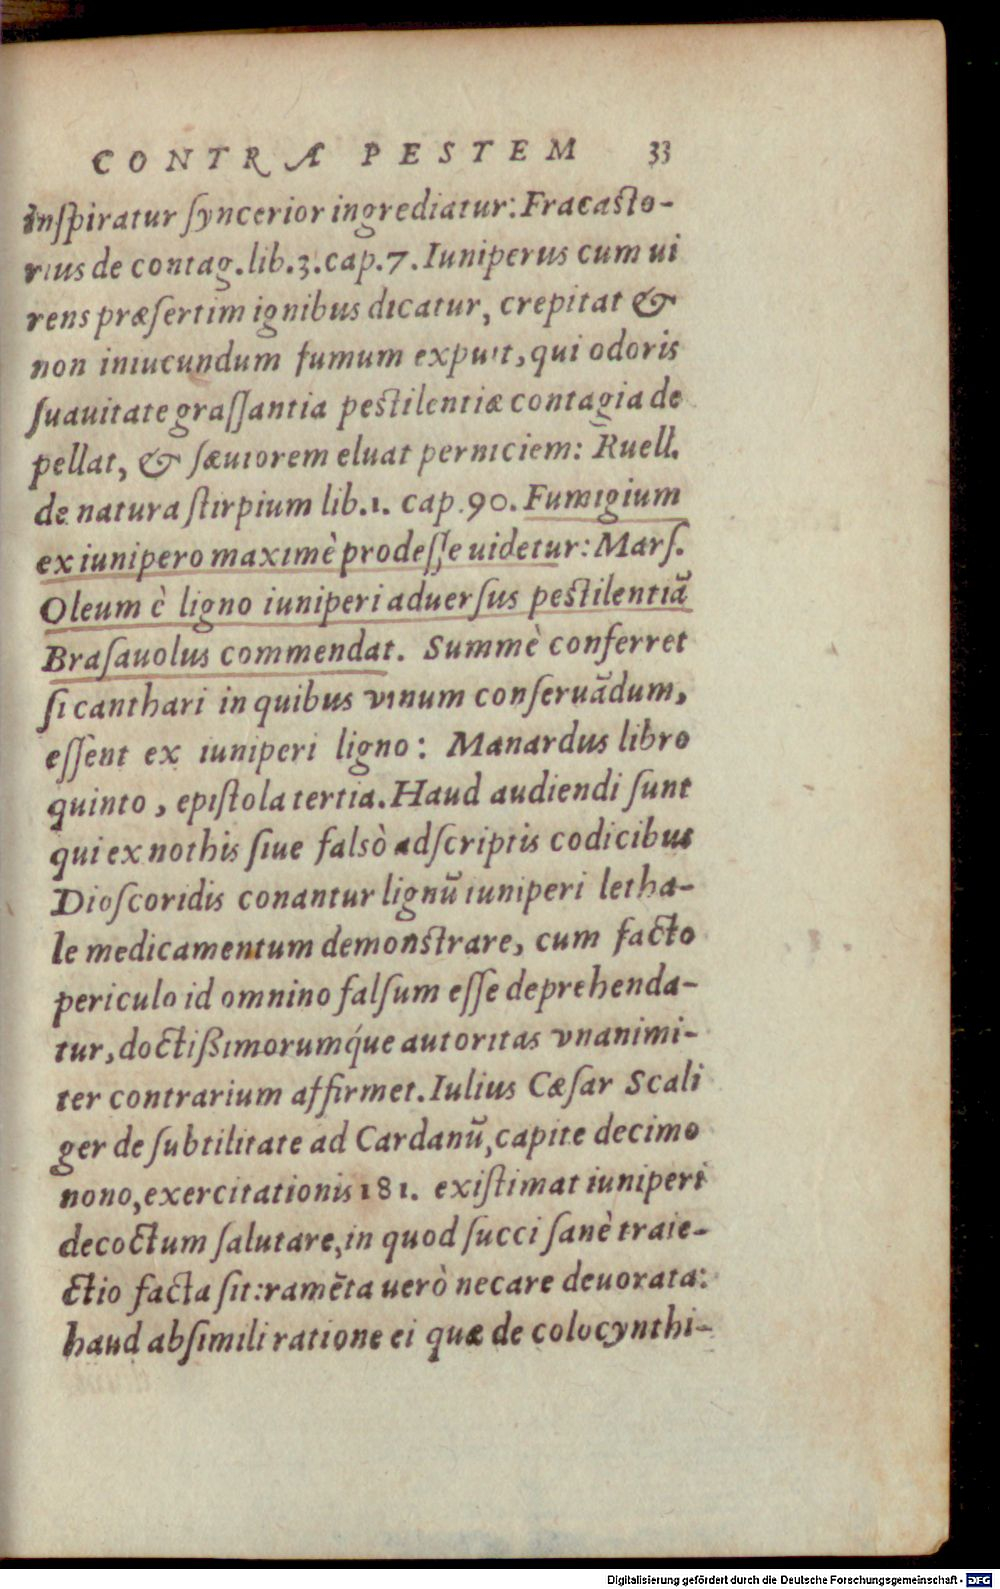 CONTRA PESTEM 33
inſpiratur ſyncerior ingrediatur: Fracaſto-
rius de contag. lib. 3. cap. 7. Iuniperus cum ui
rens præſertim ignibus dicatur, crepitat &
non iniucundum fumum expuit, qui odoris
ſuauitate graſſantia peſtilentiæ contagia de
pellat, & ſæuiorem eluat perniciem: Ruell.
de natura ſtirpium lib. 1. cap. 90. Fumigium
ex iunipero maximè prodeſſe uidetur: Marſ.
Oleum è ligno iuniperi aduerſus peſtilentiã
Braſauolus commendat. Summè conferret
ſi canthari in quibus vinum conſeruãdum,
eſſent ex iuniperi ligno: Manardus libro
quinto, epiſtola tertia. Haud audiendi ſunt
qui ex nothis ſiue falsò adſcriptis codicibus
Dioſcoridis conantur lignũ iuniperi letha-
le medicamentum demonſtrare, cum facto
periculo id omnino falſum eſſe deprehenda-
tur, doctißimorumq́ue autoritas vnanimi-
ter contrarium affirmet. Iulius Cæſar Scali
ger de ſubtilitate ad Cardanũ, capite decimo
nono, exercitationis 181. exiſtimat iuniperi
decoctum ſalutare, in quod ſucci ſanè traie-
ctio facta ſit: ramẽta uerò necare deuorata:
haud abſimili ratione ei quæ de colocynthi-
Digitalisierung gefördert durch die Deutsche Forschungsgemeinschaft - DFG